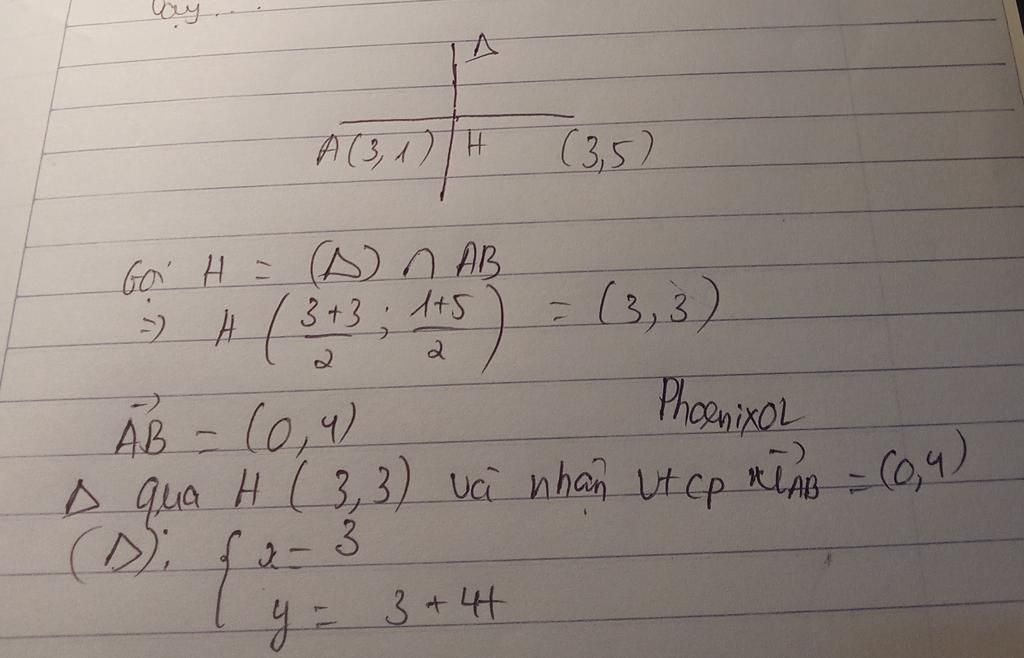 Vậy...
Δ
A(3,1) H (3,5)
Gọi H = (Δ) ∩ AB
=> H ( 3+3/2 ; 1+5/2 ) = (3,3)
→AB = (0,4)
PhoenixOL
Δ qua H (3,3) và nhận vtcp →AB = (0,4)
(Δ): { x = 3
y = 3 + 4t